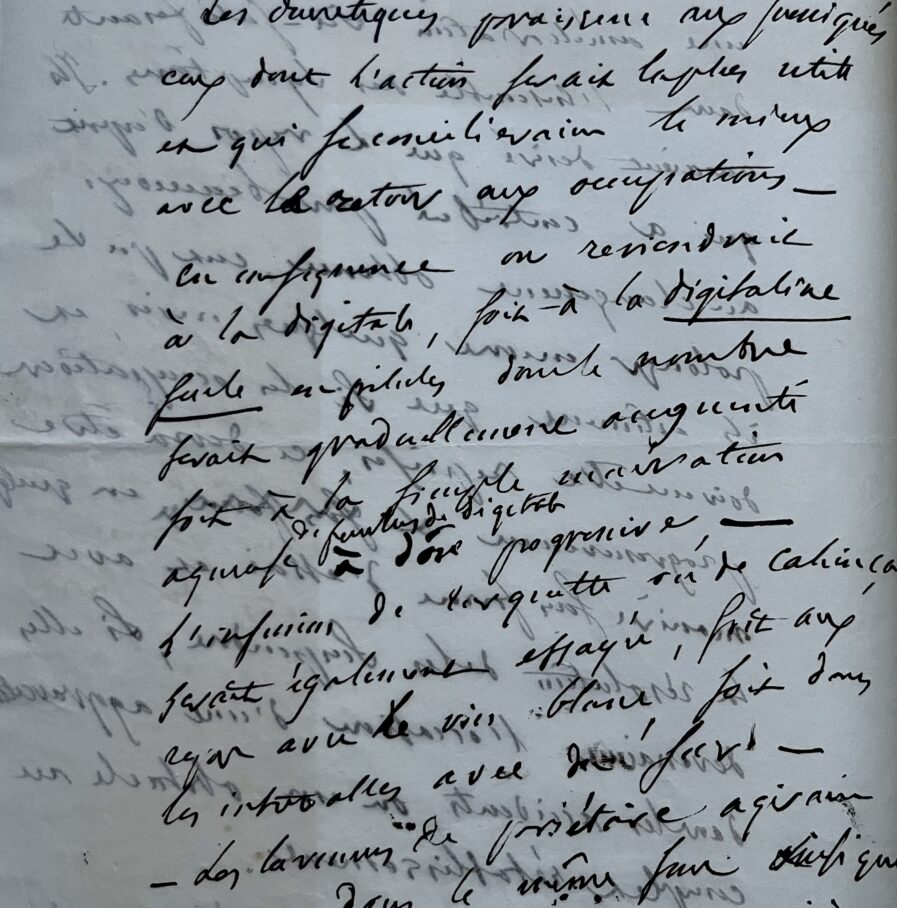 Les diurétiques
ceux dont l'action serait la plus utile
et qui se concilieraient le mieux
avec le retour aux occupations —
en conséquence on reviendrait
à la digitale, soit à la digitaline
seule en pilules dont le nombre
serait graduellement augmenté
soit à la simple macération
de feuilles de digitale
aqueuse à dose progressive —
L'infusion de ou de cahinça
serait également essayée, soit aux
repas avec le vin blanc, soit dans
les intervalles avec du
— Les de pariétaire agiraient
dans le même sens